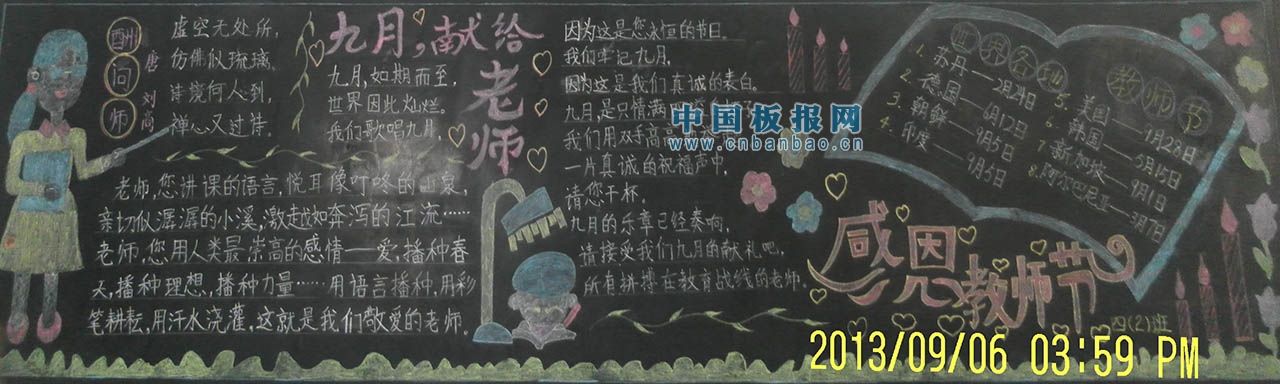 酬问师
唐 刘高
虚空无处所，
仿佛似琉璃。
诗境何人到，
禅心又过诗。
九月，献给
老师
九月，如期而至，
世界因此灿烂。
我们歌唱九月，
因为这是您永恒的节日。
我们牢记九月，
因为这是我们真诚的表白。
九月是只情满
我们用双手高高
一片真诚的祝福声中，
请您干杯。
九月的乐章已经奏响，
请接受我们九月的献礼吧，
所有拼搏在教育战线的老师。
老师，您讲课的语言，悦耳像叮咚的山泉，
亲切似潺潺的小溪，激越如奔泻的江流……
老师，您用人类最崇高的感情——爱，播种春
天，播种理想，播种力量……用语言播种，用彩
笔耕耘，用汗水浇灌，这就是我们敬爱的老师。
中国板报网
www.cnbanbao.cn
世界各地
教师节
1. 苏丹——2月24日
2. 德国——6月12日
3. 朝鲜——9月5日
4. 印度——9月5日
5. 美国——9月28日
6. 韩国——5月15日
7. 新加坡——9月1日
8. 阿尔巴尼亚——3月7日
感恩教师节
四(2)班
2013/09/06 03:59 PM